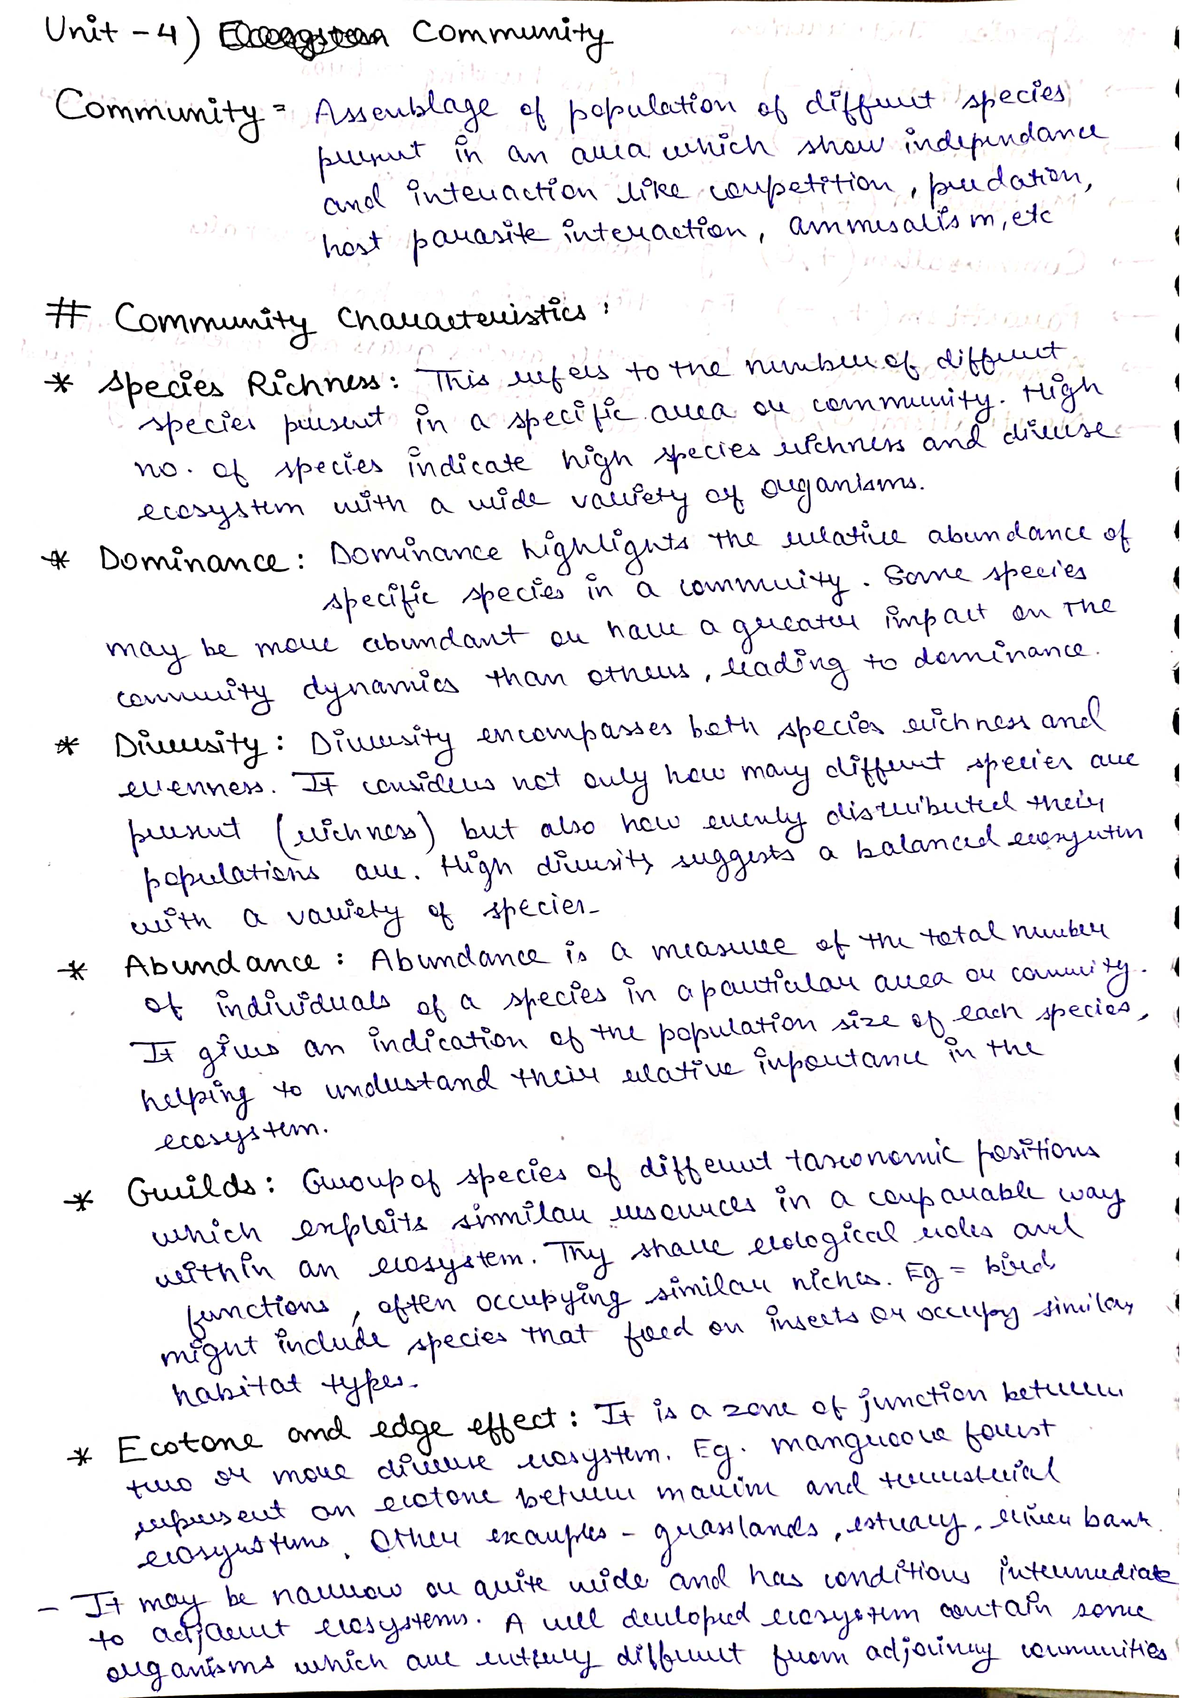 Unit - 4) Ecosystem Community
Community = Assemblage of population of different species
present in an area which show independance
and interaction like competition, predation,
host parasite interaction, ammesalism, etc
# Community Characteristics :
* Species Richness : This refers to the number of different
species present in a specific area or community. High
no. of species indicate high species richness and diverse
ecosystem with a wide variety of organisms.
* Dominance : Dominance highlights the relative abundance of
specific species in a commuity. Some species
may be more abundant or have a greater impact on the
community dynamics than others, leading to dominance.
* Diversity : Diversity encompasses both species richness and
evenness. It considers not only how many different species are
present (richness) but also how evenly distributed their
populations are. High diversity suggests a balanced ecosystem
with a variety of species.
* Abundance : Abundance is a measure of the total number
of individuals of a species in a particular area or community.
It gives an indication of the population size of each species,
helping to understand their relative importance in the
ecosystem.
* Guilds : Group of species of different taxonomic positions
which exploits similar resources in a comparable way
within an ecosystem. They share ecological roles and
functions, often occupying similar niches. Eg = birds
might include species that feed on insects or occupy similar
habitat types.
* Ecotone and edge effect : It is a zone of junction between
two or more diverse ecosystem. Eg. mangroove forest
represent an ecotone between marine and terresterial
ecosystems. Other examples - grasslands, estuary, river bank.
- It may be narrow or quite wide and has conditions intermediate
to adjacent ecosystems. A well developed ecosystem contain some
organisms which are entirely different from adjoining communities